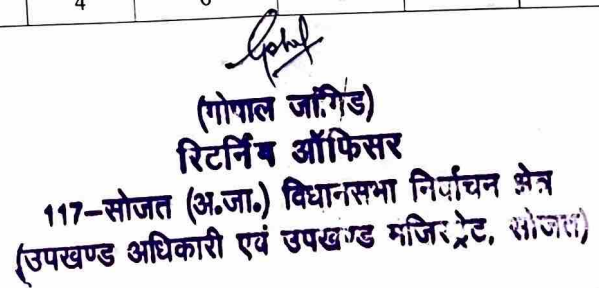 4
(गोपाल जांगिड)
रिटर्निंग ऑफिसर
117-सोजत (अ.जा.) विधानसभा निर्वाचन क्षेत्र
(उपखण्ड अधिकारी एवं उपखण्ड मजिस्ट्रेट, सोजत)